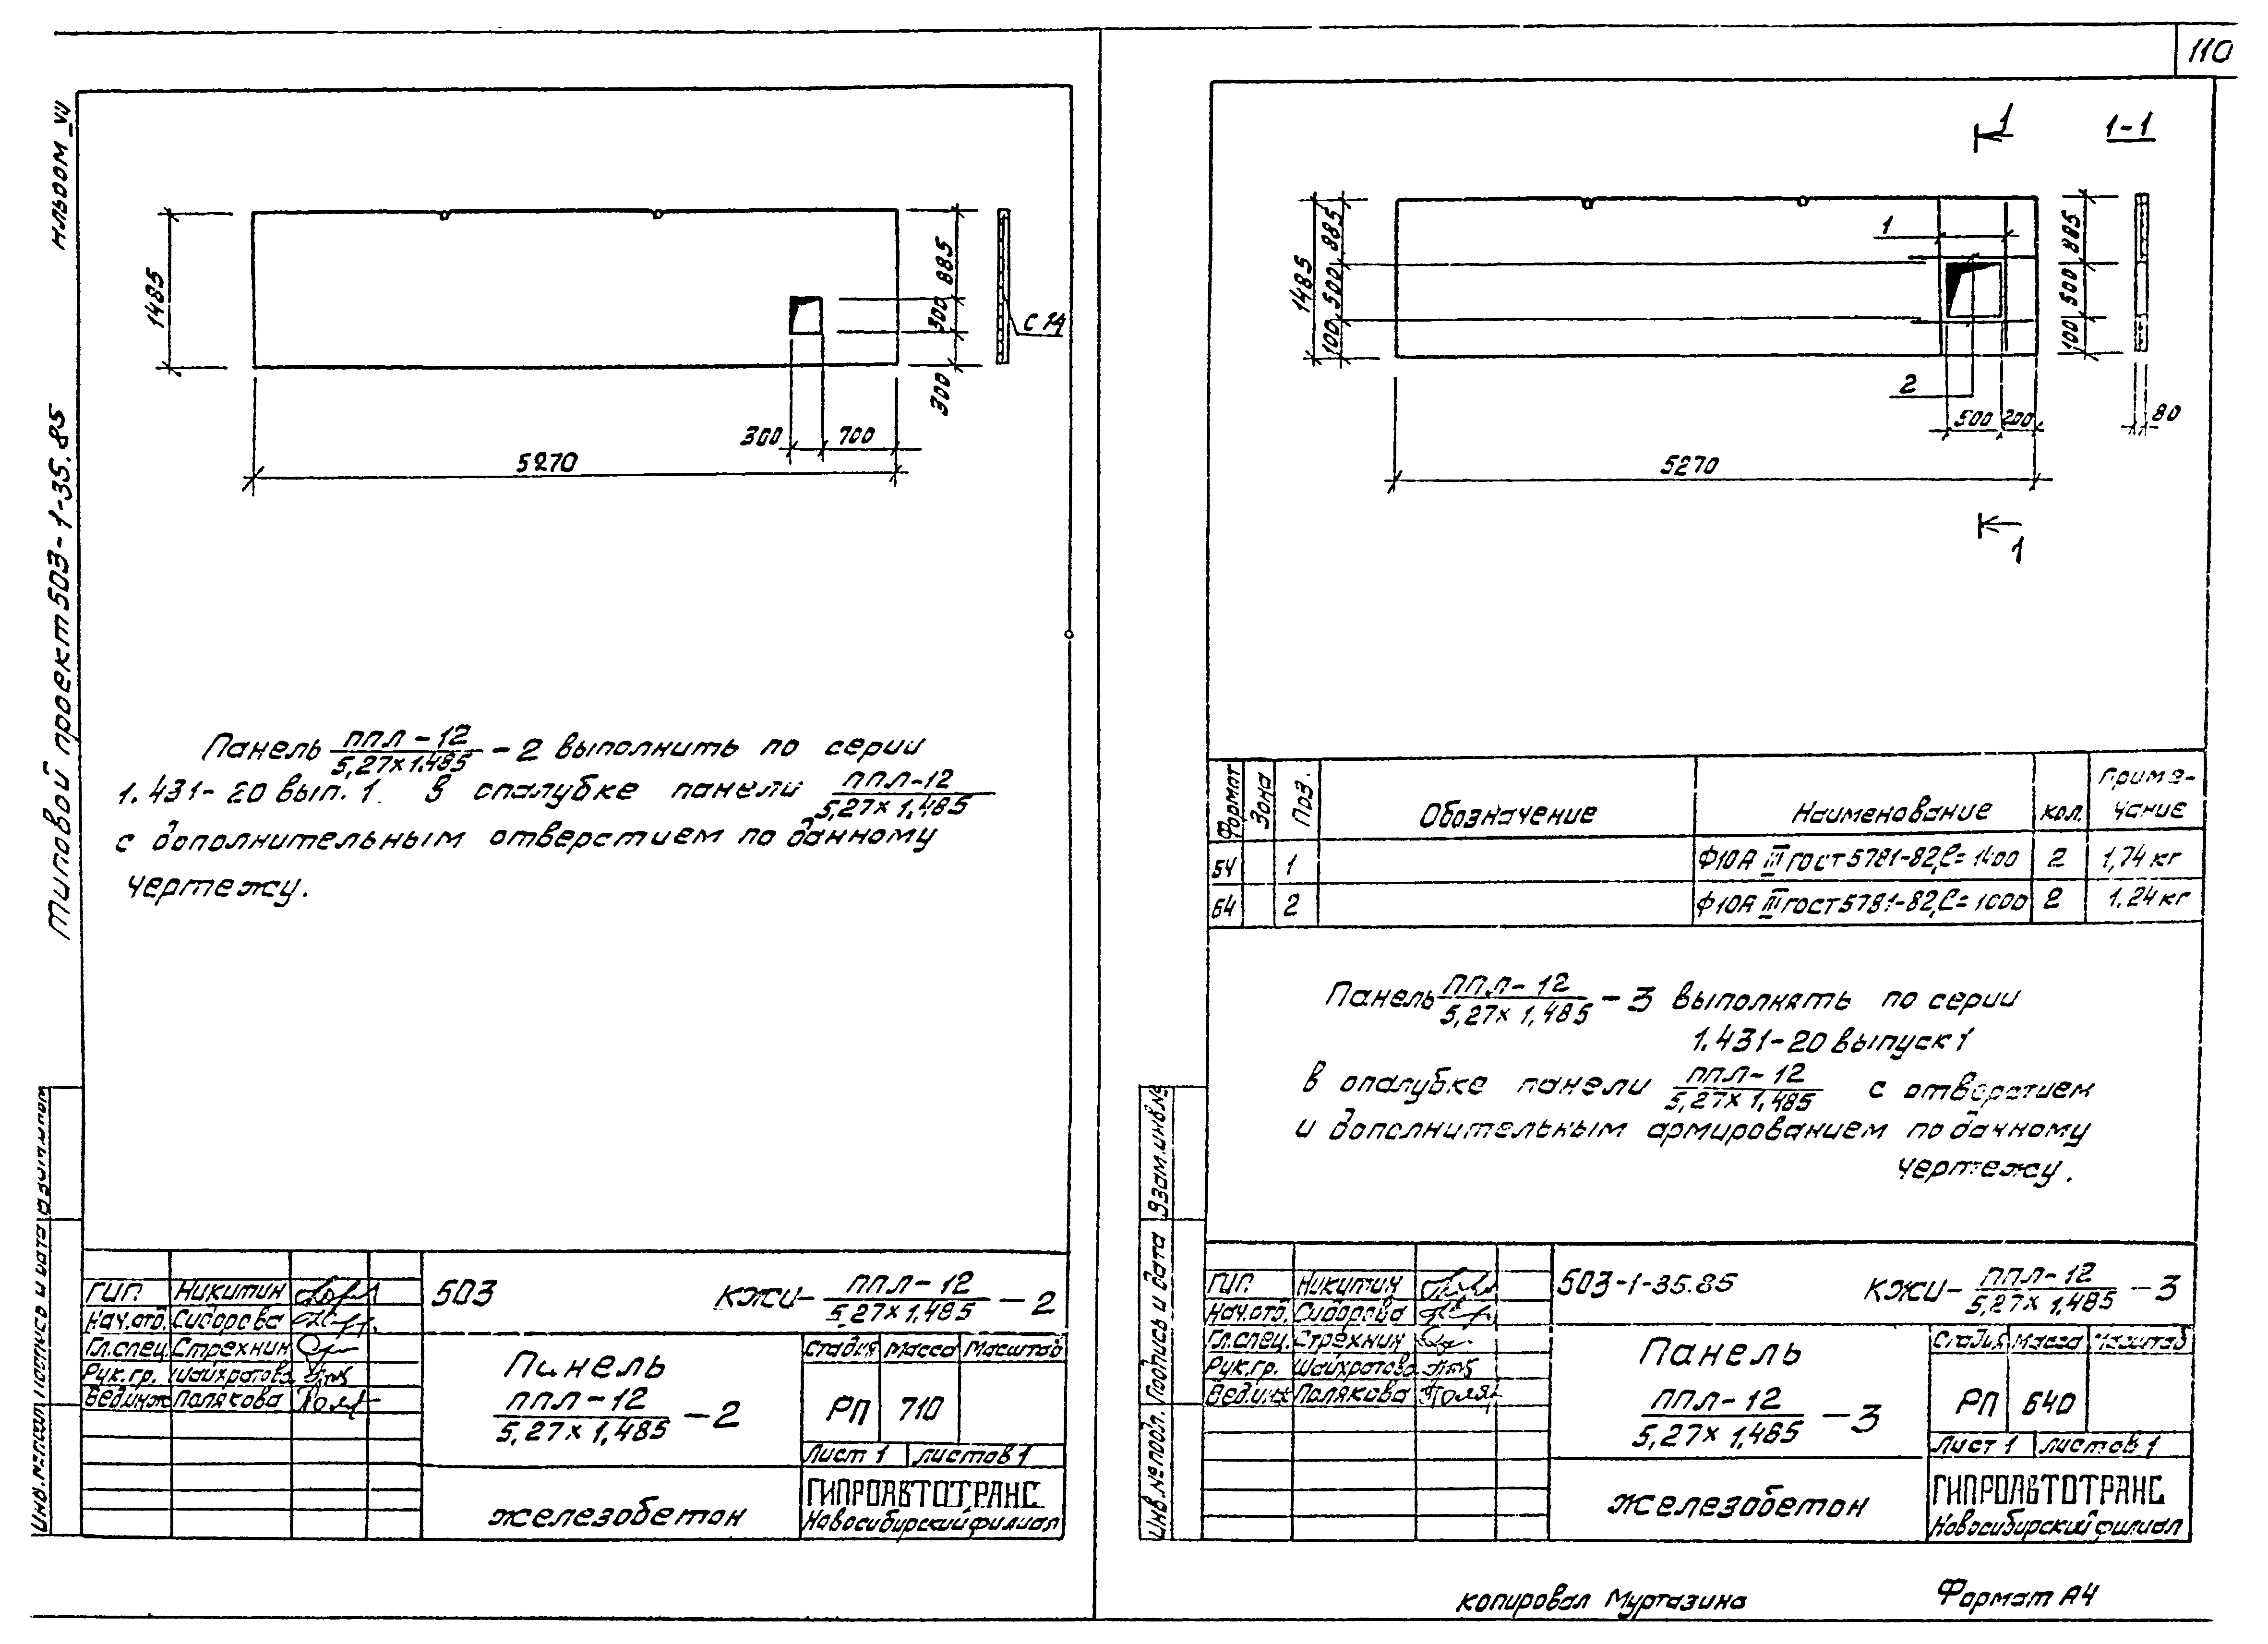 110
Альбом VII
Типовой проект 503-1-35.85
1485
885
300
300
С 14
300
700
5270
Панель ППЛ-12 / 5,27х1,485 - 2 выполнить по серии
1.431-20 вып. 1. в опалубке панели ППЛ-12 / 5,27х1,485
с дополнительным отверстием по данному
чертежу.
ГИП Никитин
Нач.отд. Сидорова
Гл.спец. Стрехнин
Рук.гр. Шайхратова
Вед.инж Полякова
503 КЖИ- ППЛ-12 / 5,27х1,485 - 2
Панель
ППЛ-12 / 5,27х1,485 - 2
железобетон
Стадия Масса Масштаб
РП 710
Лист 1 листов 1
ГИПРОАВТОТРАНС
Новосибирский филиал
1
1-1
1485
885
500
100
1
2
885
500
100
500
200
80
5270
1
Формат Зона Поз. Обозначение Наименование кол. Приме-
чание
БЧ 1 Ф10А III ГОСТ 5781-82, ℓ=1400 2 1,74 кг
БЧ 2 Ф10А III ГОСТ 5781-82, ℓ=1000 2 1.24 кг
Панель ППЛ-12 / 5,27х1,485 - 3 выполнять по серии
1.431-20 выпуск 1
в опалубке панели ППЛ-12 / 5,27х1,485 с отверстием
и дополнительным армированием по данному
чертежу.
Взам.инв.№
Подпись и дата
Инв.№ подл.
ГИП Никитин
Нач.отд. Сидорова
Гл.спец. Стрехнин
Рук.гр. Шайхратова
Вед.инж Полякова
503-1-35.85 КЖИ- ППЛ-12 / 5,27х1,485 - 3
Панель
ППЛ-12 / 5,27х1,485 - 3
железобетон
Стадия Масса Масштаб
РП 640
Лист 1 листов 1
ГИПРОАВТОТРАНС
Новосибирский филиал
копировал Муртазина Формат А4